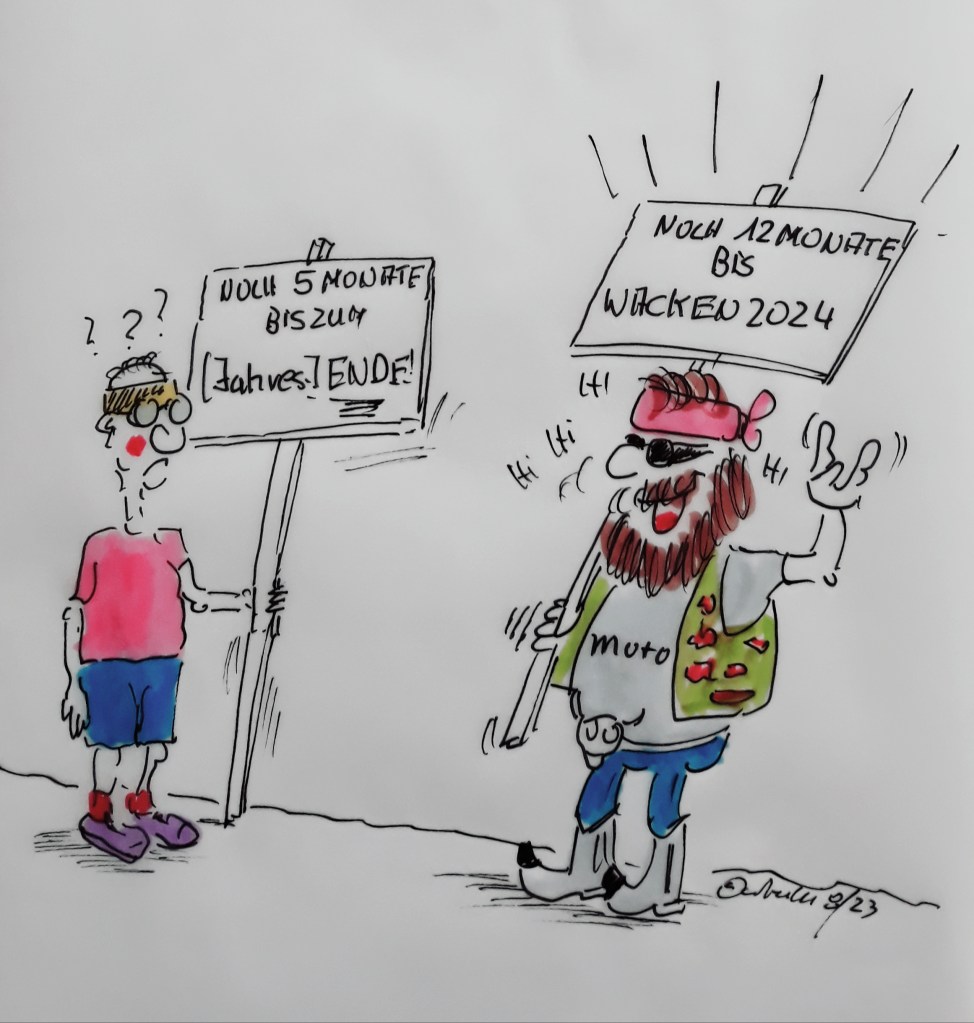 ? ? ?
NOCH 5 MONATE
BIS ZUM
[Jahres-] ENDE!
NOCH 12 MONATE
BIS
WACKEN 2024
HI
HI
HI
HI
moto
8/23